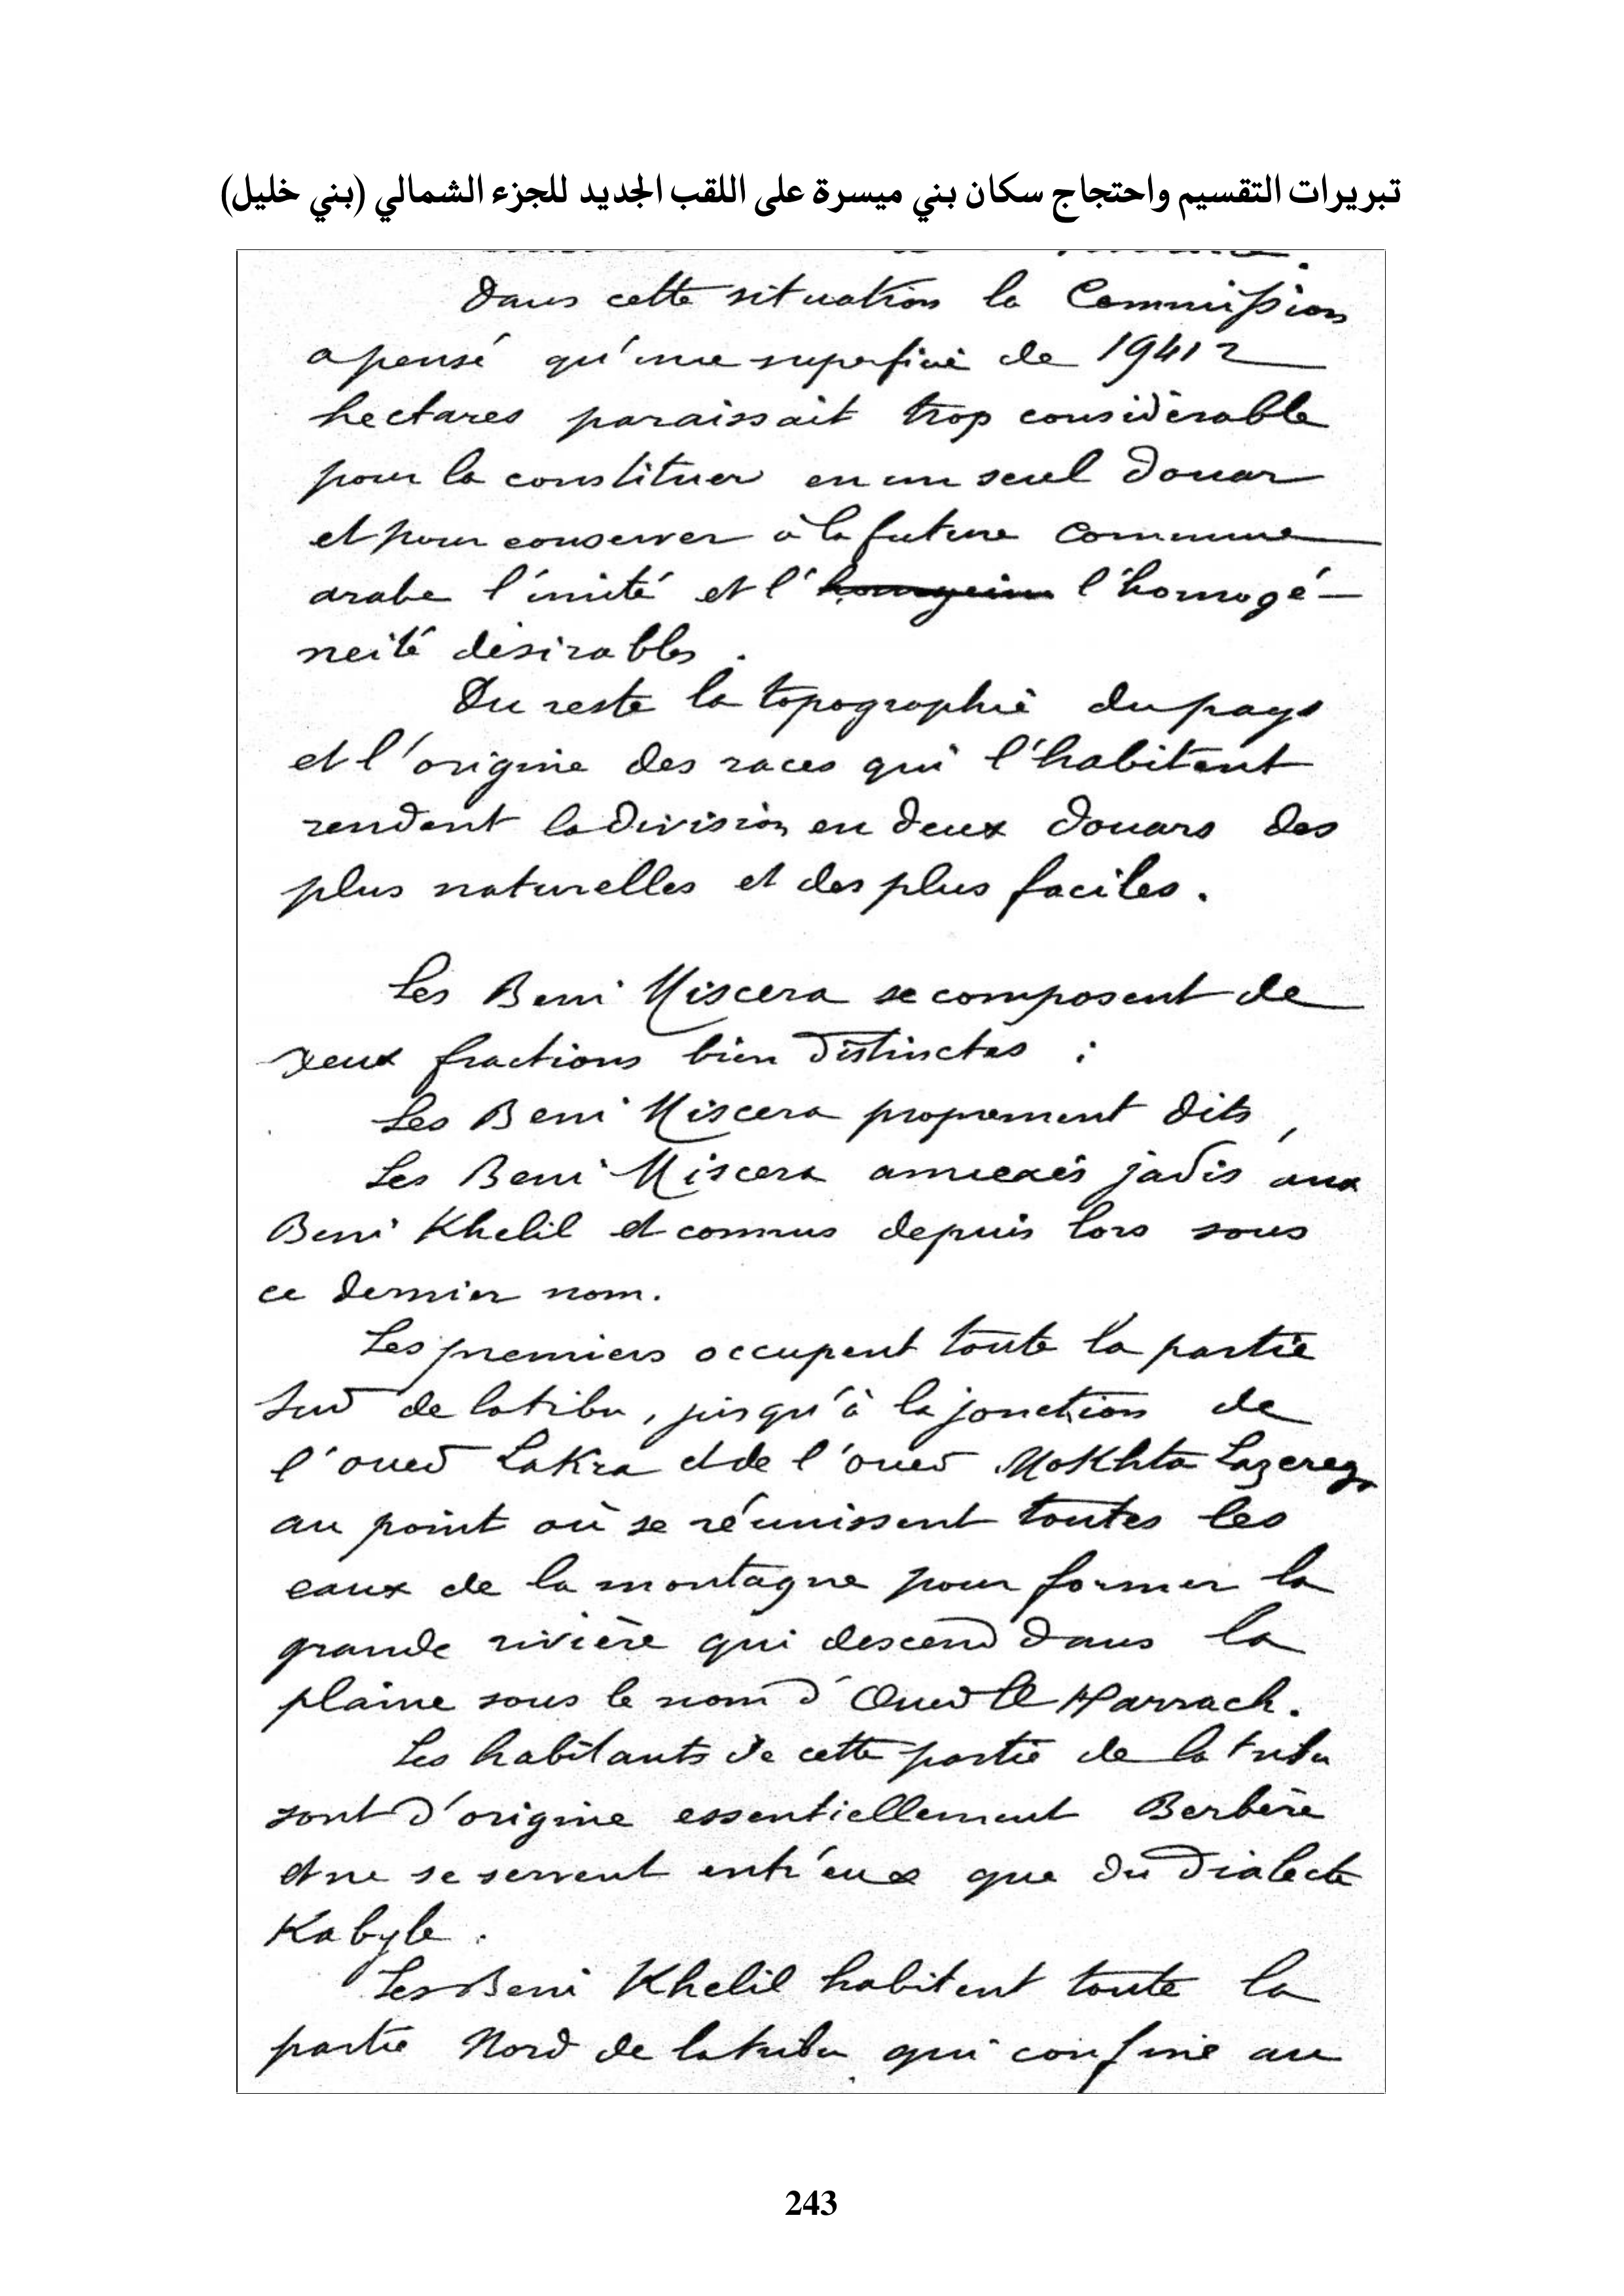 تبريرات التقسيم واحتجاج سكان بني ميسرة على اللقب الجديد للجزء الشمالي (بني خليل)
Dans cette situation la Commission
a pensé qu'une superficie de 19412
hectares paraissait trop considèrable
pour la constituer en un seul douar
et pour conserver à la future commune
arabe l'unité et l' l'homogé-
neité désirables.
Du reste la topographie du pays
et l'origine des races qui l'habitent
rendent la division en deux douars des
plus naturelles et des plus faciles.
Les Beni Miscera se composent de
deux fractions bien distinctes :
Les Beni Miscera proprement dits,
Les Beni Miscera annexés jadis aux
Beni Khelil et connus depuis lors sous
ce dernier nom.
Les premiers occupent toute la partie
Sud de la tribu, jusqu'à la jonction de
l'oued Lakra et de l'oued Mokhta Lazereg
au point où se réunissent toutes les
eaux de la montagne pour former la
grande rivière qui descend dans la
plaine sous le nom d'Oued El Harrach.
Les habitants de cette partie de la tribu
sont d'origine essentiellement Berbère
et ne se servent entr'eux que du dialecte
Kabyle.
Les Beni Khelil habitent toute la
partie Nord de la tribu qui confine au
243